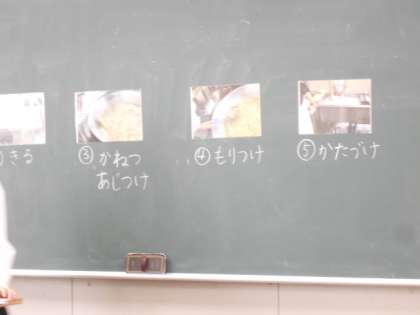 きる
③かねつ
あじつけ
④もりつけ
⑤かたづけ